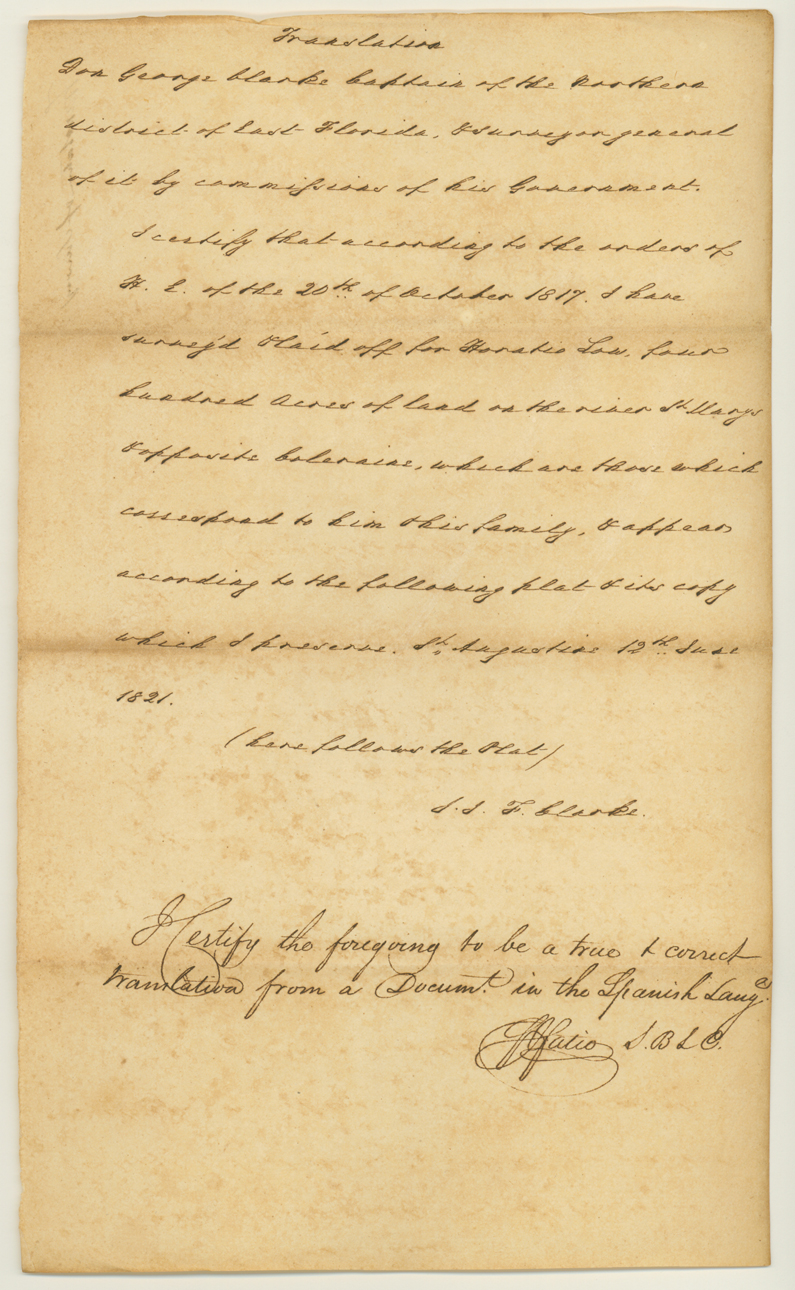 Translation
Don George Clarke Captain of the Northern
district of East Florida, & surveyor general
of it by commissions of his Government.
I certify that according to the orders of
H. E. of the 20th of October 1817. I have
survey'd & laid off for Horatio Low, four
hundred Acres of land on the river St Marys
& opposite Coleraine, which are those which
correspond to him & his family, & appear
according to the following plat & its copy
which I preserve. St Augustine 12th June
1821.
(here follows the Plat)
F. Clarke.
I Certify the foregoing to be a true & correct
translation from a Documt. in the Spanish Lange.
S. B L C.